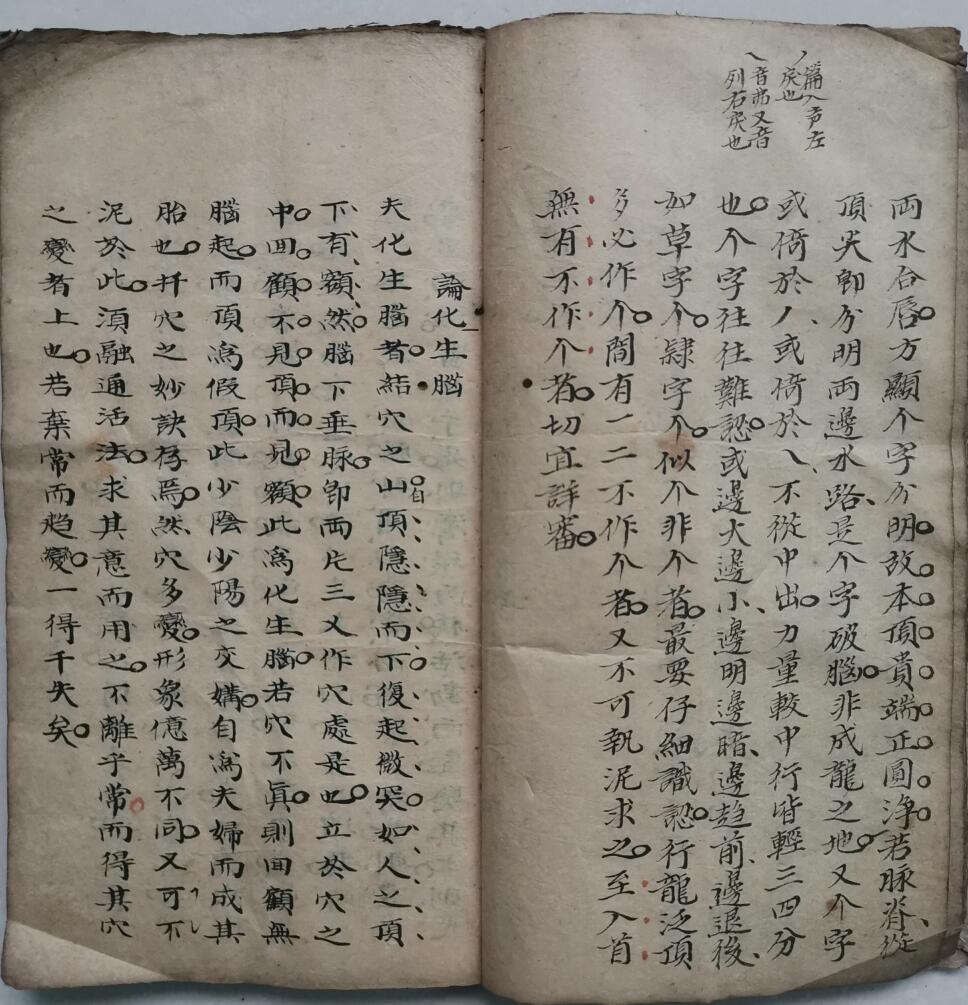 丿篇入声左
戾也
乀音弗又音
列右戾也
両水合唇方顯个字分明故本頂貴端正圓净若脉脊従
頂尖卽分明両邊水路是个字破腦非成龍之地又个字
或倚於丿或倚於乀不従中出力量較中行皆輕三四分
也个字往往難認或邊大邊小邊明邊暗邊趋前邊退後
如草字个隷字个似个非个者最要仔細識認行龍泛頂
多必作个間有一二不作个者又不可執泥求之至入首
無有不作个者切宜詳審
論化生腦
夫化生腦者結穴之山自頂隱隱而下復起微突如人之頂
下有額然腦下垂脉卽両片三乂作穴處是也立於穴之
中回顧不見頂而見額此為化生腦若穴不眞則回顧無
腦起而頂為假頂此少陰少陽之交媾自為夫婦而成其
胎也扦穴之妙訣存焉然穴多變形象億萬不同又可不
泥於此須融通活法求其意而用之不離乎常而得其穴
之變者上也若棄常而趋變一得千失矣